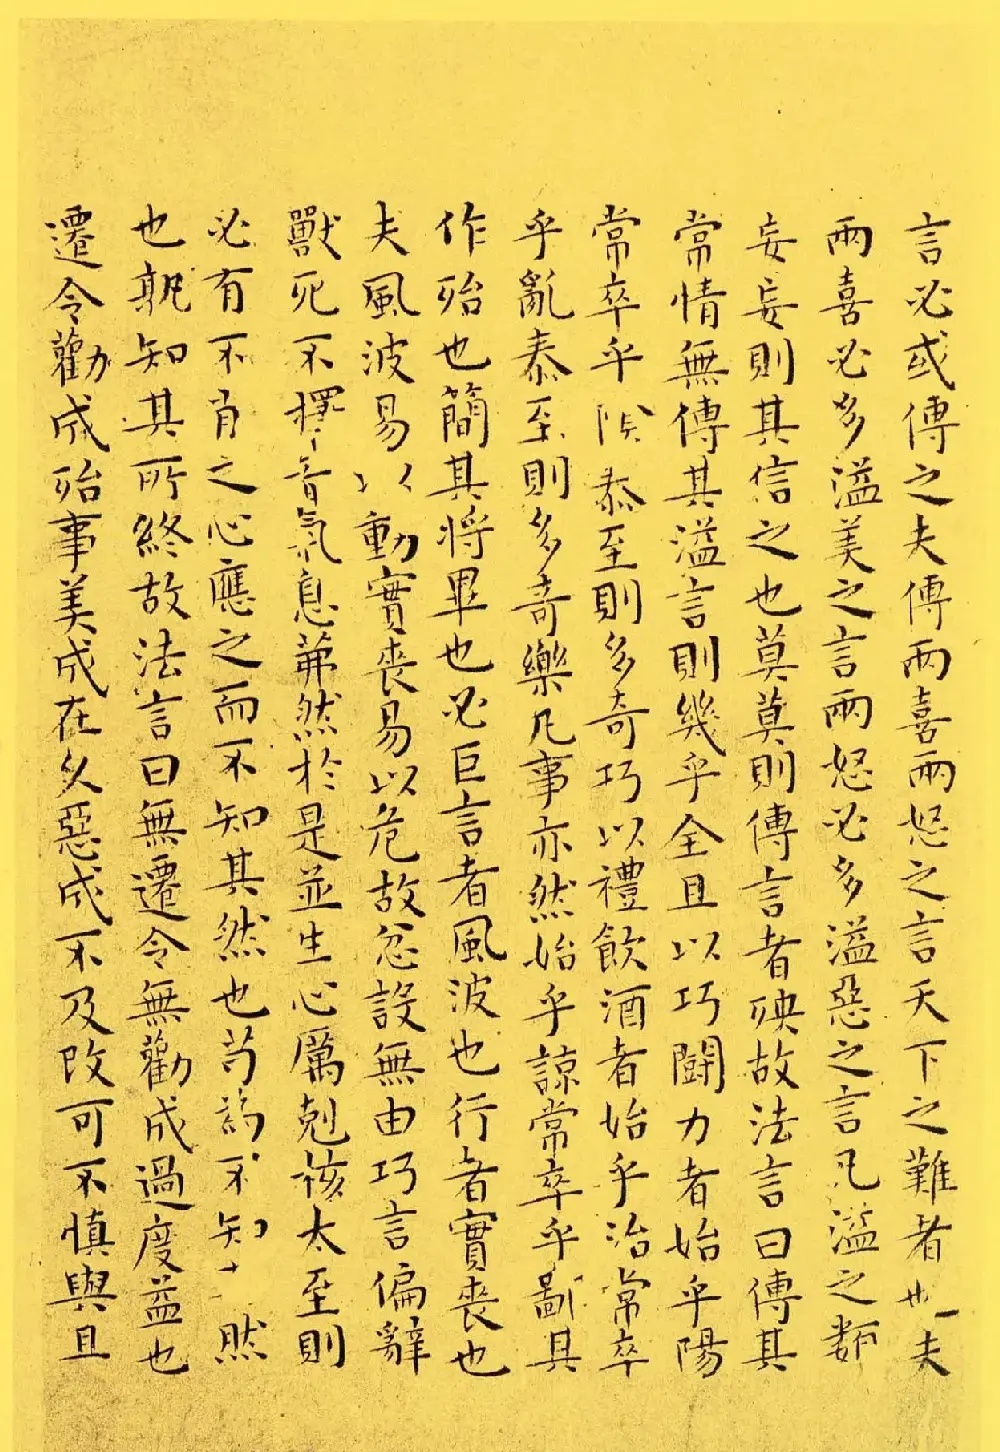 言必或傳之夫傳兩喜兩怒之言天下之難者也夫
兩喜必多溢美之言兩怒必多溢惡之言凡溢之類
妄妄則其信之也莫莫則傳言者殃故法言曰傳其
常情無傳其溢言則幾乎全且以巧鬪力者始乎陽
常卒乎陰泰至則多奇巧以禮飲酒者始乎治常卒
乎亂泰至則多奇樂凡事亦然始乎諒常卒乎鄙其
作殆也簡其將畢也必巨言者風波也行者實喪也
夫風波易以動實喪易以危故忿設無由巧言偏辭
獸死不擇音氣息茀然於是並生心厲剋核太至則
必有不肖之心應之而不知其然也苟為不知然
也孰知其所終故法言曰無遷令無勸成過度益也
遷令勸成殆事美成在久惡成不及改可不慎與且